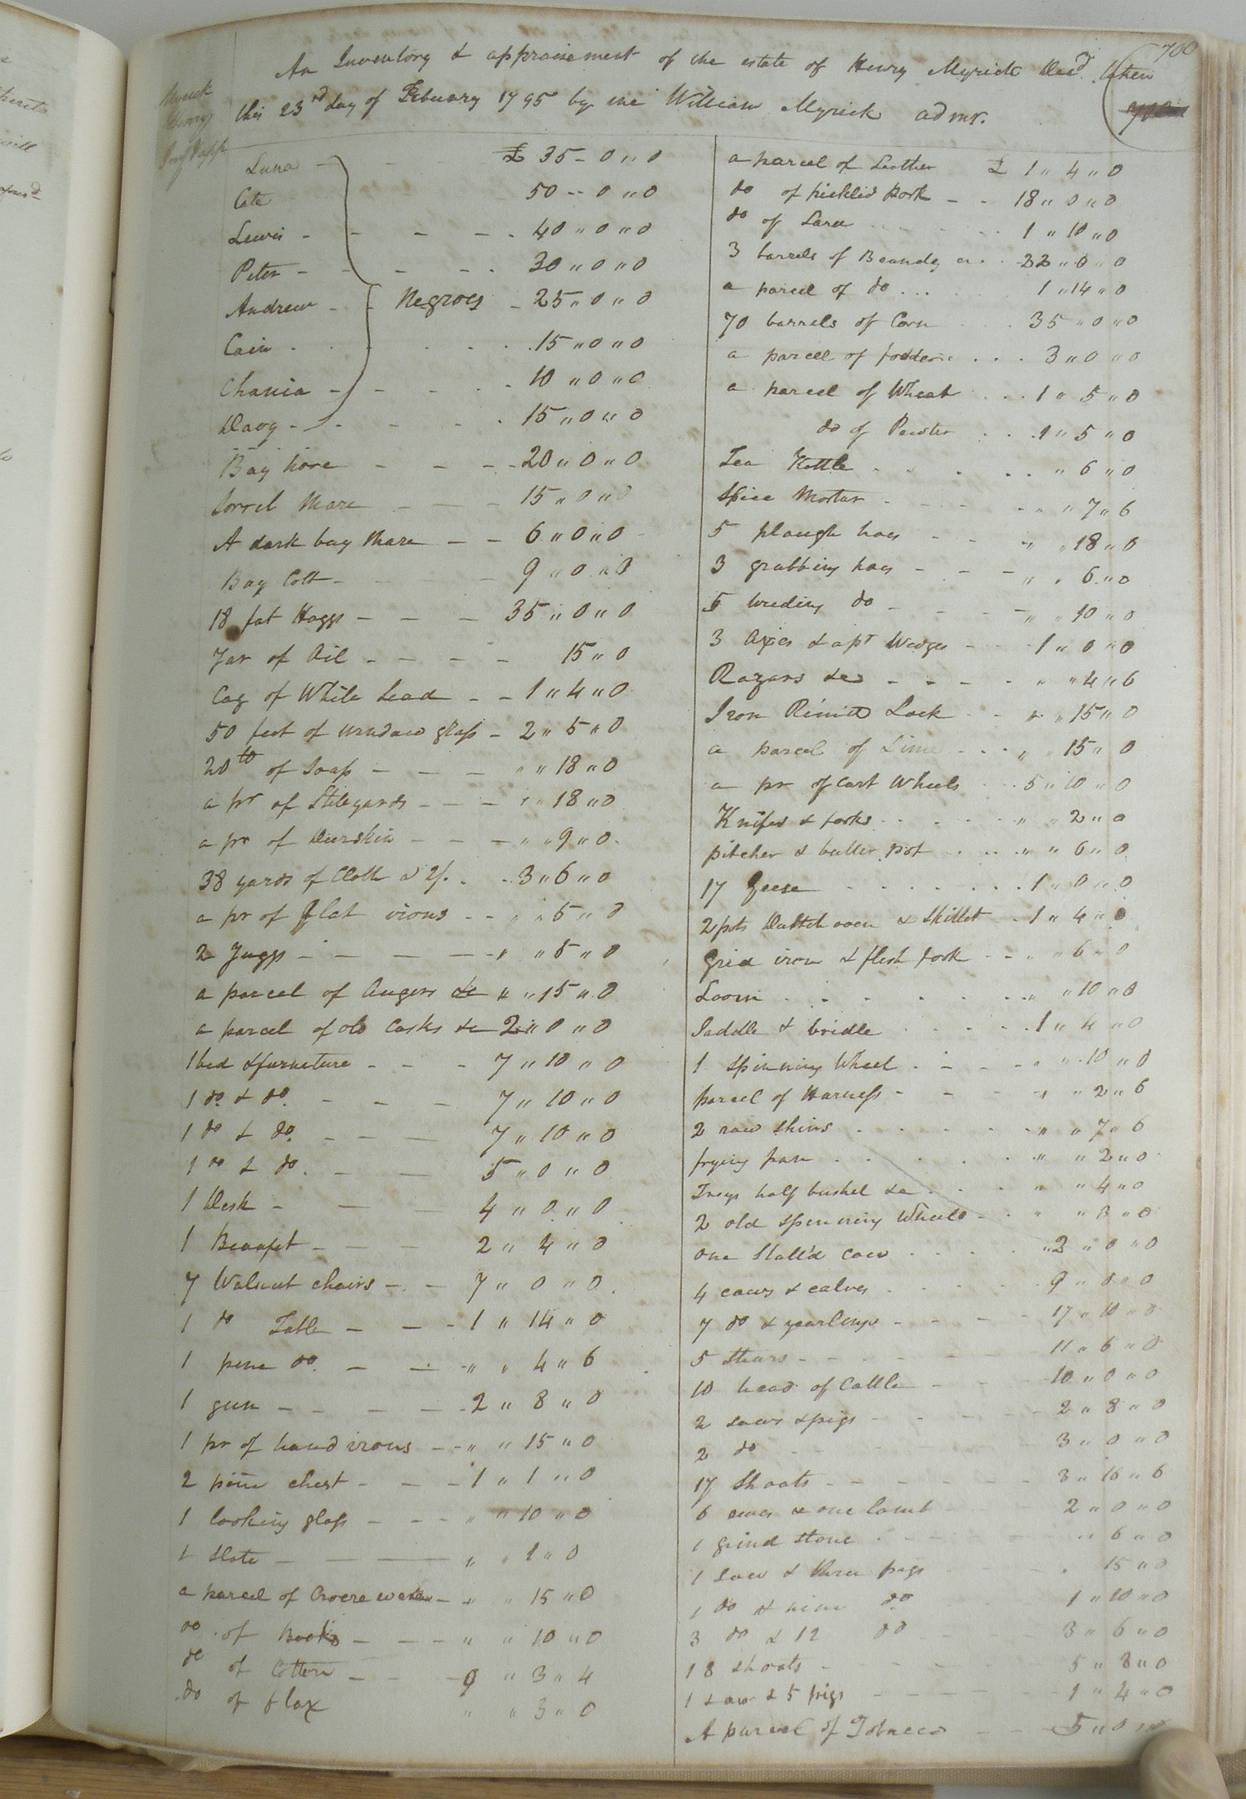 700
An Inventory & appraisement of the estate of Henry Myrick Decd. taken
this 23rd day of February 1795 by me William Myrick admr.
Myrick
Henry
Inv & app
Luna - - £ 35 - 0 " 0
Cate 50 - 0 " 0
Lewis - - - - 40 " 0 " 0
Peter - - - - 30 " 0 " 0
Andrew - - Negroes - 25 " 0 " 0
Cain - - - - 15 " 0 " 0
Chania - - - - 10 " 0 " 0
Davy - - - - 15 " 0 " 0
Bay horse - - - 20 " 0 " 0
Sorrel Mare - - - 15 " 0 " 0
A dark bay Mare - - 6 " 0 " 0
Bay Colt - - - 9 " 0 " 0
18 fat Hoggs - - - 35 " 0 " 0
Jar of Oil - - - - 15 " 0
Cag of White Lead - - 1 " 4 " 0
50 feet of window glass - 2 " 5 " 0
20 lb of Soap - - - " " 18 " 0
a pr of Stilyards - - - " " 18 " 0
a pr of Deerskin - - - " " 9 " 0
38 yards of Cloth a 2/. - - 3 " 6 " 0
a pr of flat irons - - " " 5 " 0
2 Juggs - - - - " " 5 " 0
a parcel of Augers &c " " 15 " 0
a parcel of old Casks &c 2 " 0 " 0
1 bed & furneture - - - 7 " 10 " 0
1 do. & do. - - - 7 " 10 " 0
1 do & do. - - - 7 " 10 " 0
1 do & do. - - 5 " 0 " 0
1 Desk - - - 4 " 0 " 0
1 Beaufet - - - 2 " 4 " 0
7 Walnut chairs - - 7 " 0 " 0
1 do Table - - - 1 " 14 " 0
1 pine do. - - - " " 4 " 6
1 gun - - - - 2 " 8 " 0
1 pr of hand irons - - " " 15 " 0
2 pine chest - - - 1 " 1 " 0
1 looking glass - - - " " 10 " 0
1 Slate - - - " " 1 " 0
a parcel of Crocre ware - " " 15 " 0
do. of Books - - - " " 10 " 0
do of Cotton - - - " 3 " 4
do of flax " " 3 " 0
a parcel of Leather £ 1 " 4 " 0
do of pickled Pork - - 18 " 0 " 0
do of Lard - - - 1 " 10 " 0
3 barrels of Brandy - - 22 " 0 " 0
a parcel of do - - - 1 " 14 " 0
70 barrels of Corn - - 35 " 0 " 0
a parcel of fodder - - - 3 " 0 " 0
a parcel of Wheat - - - 1 " 5 " 0
do of Pewter - - - 1 " 5 " 0
Tea Kettle - - - - " 6 " 0
Spice Mortar - - - - " " 7 " 6
5 plough hoes - - " " 18 " 0
3 grubbing hoes - - - " " 6 " 0
5 weeding do - - - " " 10 " 0
3 Axes & apt Wedges - - - 1 " 0 " 0
Razors &c - - - - " " 4 " 6
Iron Rimed Lock - - " " 15 " 0
a parcel of Lime - - - " " 15 " 0
a pr of Cart Wheels - - 5 " 10 " 0
Knifes & forks - - - - " " 2 " 0
pitcher & butter pot - - - " " 6 " 0
17 Geese - - - - 1 " 0 " 0
2 pots Dutch oven & Skillet - 1 " 4 " 0
Grid iron & flesh fork - - - " 6 " 0
Loom - - - - " " 10 " 0
Saddle & bridle - - - 1 " 4 " 0
1 Spinning Wheel - - - " " 10 " 0
parcel of Harness - - - " " 2 " 6
2 raw Skins - - - - " " 7 " 6
frying pan - - - - " " 2 " 0
Trays half bushel &c - - - " " 4 " 0
2 old Spinning Wheels - - " " 3 " 0
one Stall'd Cow - - - - " 2 " 0 " 0
4 cows & calves - - - - 9 " 0 " 0
7 do & yearlings - - - - 17 " 10 " 0
5 Stears - - - - 11 " 6 " 0
10 head of Cattle - - - 10 " 0 " 0
2 sows & pigs - - - - 2 " 8 " 0
2 do - - - - 3 " 0 " 0
17 Shoats - - - - 3 " 16 " 6
6 ewes & one lamb - - 2 " 0 " 0
1 grind stone - - - - " 6 " 0
1 sow & three pigs - - - " 15 " 0
1 do & nine do - - 1 " 10 " 0
3 do & 12 do - - 3 " 6 " 0
18 Shoats - - - - 5 " 8 " 0
1 Sow & 5 pigs - - - - 1 " 4 " 0
A parcel of Tobacco - - - 5 " 0 " 0